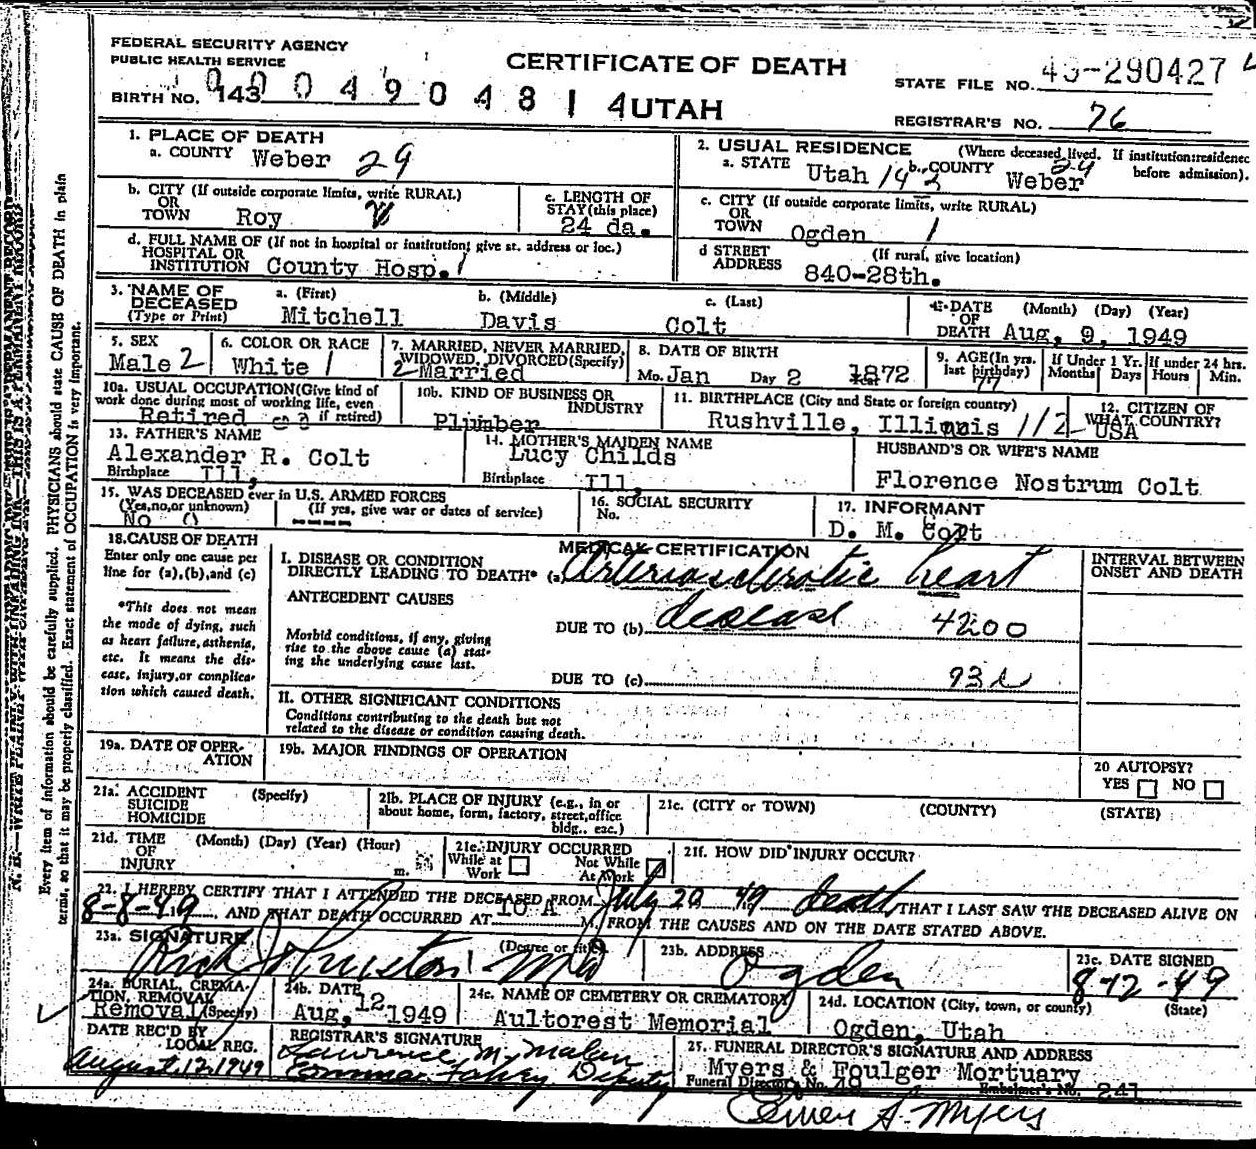 FEDERAL SECURITY AGENCY
PUBLIC HEALTH SERVICE
CERTIFICATE OF DEATH
STATE FILE NO. 49-290427
BIRTH NO. 143 0004904814 UTAH
REGISTRAR'S NO. 76
1. PLACE OF DEATH
a. COUNTY Weber 29
b. CITY (If outside corporate limits, write RURAL)
OR
TOWN Roy
c. LENGTH OF
STAY (this place)
24 da.
d. FULL NAME OF (If not in hospital or institution, give st. address or loc.)
HOSPITAL OR
INSTITUTION County Hosp. 1
2. USUAL RESIDENCE (Where deceased lived. If institution: residence
before admission).
a. STATE Utah 143 b. COUNTY Weber
c. CITY (If outside corporate limits, write RURAL)
OR
TOWN Ogden 1
d STREET (If rural, give location)
ADDRESS 840-28th.
3. NAME OF
DECEASED
(Type or Print)
a. (First) Mitchell
b. (Middle) Davis
c. (Last) Colt
4. DATE (Month) (Day) (Year)
OF
DEATH Aug. 9, 1949
5. SEX
Male 2
6. COLOR OR RACE
White 1
7. MARRIED, NEVER MARRIED,
WIDOWED, DIVORCED (Specify)
2 Married
8. DATE OF BIRTH
Mo. Jan Day 2 1872
9. AGE (In yrs.
last birthday)
77
If Under 1 Yr.
Months Days
If under 24 hrs.
Hours Min.
10a. USUAL OCCUPATION (Give kind of
work done during most of working life, even
if retired)
Retired
10b. KIND OF BUSINESS OR
INDUSTRY
Plumber
11. BIRTHPLACE (City and State or foreign country)
Rushville, Illinois 112
12. CITIZEN OF
WHAT COUNTRY?
USA
13. FATHER'S NAME
Alexander R. Colt
Birthplace Ill.
14. MOTHER'S MAIDEN NAME
Lucy Childs
Birthplace Ill.
HUSBAND'S OR WIFE'S NAME
Florence Nostrum Colt
15. WAS DECEASED ever in U.S. ARMED FORCES
(Yes, no, or unknown) (If yes, give war or dates of service)
No 0 ----
16. SOCIAL SECURITY
No.
17. INFORMANT
D. M. Colt
18. CAUSE OF DEATH
Enter only one cause per
line for (a), (b), and (c)
*This does not mean
the mode of dying, such
as heart failure, asthenia,
etc. It means the dis-
ease, injury, or complica-
tion which caused death.
MEDICAL CERTIFICATION
I. DISEASE OR CONDITION
DIRECTLY LEADING TO DEATH* (a) Arteriosclerotic heart
ANTECEDENT CAUSES
DUE TO (b) disease 4200
Morbid conditions, if any, giving
rise to the above cause (a) stat-
ing the underlying cause last.
DUE TO (c) 93
II. OTHER SIGNIFICANT CONDITIONS
Conditions contributing to the death but not
related to the disease or condition causing death.
INTERVAL BETWEEN
ONSET AND DEATH
19a. DATE OF OPER-
ATION
19b. MAJOR FINDINGS OF OPERATION
20 AUTOPSY?
YES NO
21a. ACCIDENT (Specify)
SUICIDE
HOMICIDE
21b. PLACE OF INJURY (e.g., in or
about home, form, factory, street, office
bldg., eac.)
21c. (CITY or TOWN) (COUNTY) (STATE)
21d. TIME (Month) (Day) (Year) (Hour)
OF
INJURY m.
21e. INJURY OCCURRED
While at Work
Not While At Work
21f. HOW DID INJURY OCCUR?
22. I HEREBY CERTIFY THAT I ATTENDED THE DECEASED FROM July 20 49 death, THAT I LAST SAW THE DECEASED ALIVE ON
8-8-49, AND THAT DEATH OCCURRED AT 10 A M., FROM THE CAUSES AND ON THE DATE STATED ABOVE.
23a. SIGNATURE (Degree or title)
MD
23b. ADDRESS
Ogden
23c. DATE SIGNED
8-12-49
24a. BURIAL, CREMA-
TION, REMOVAL
Removal (Specify)
24b. DATE
Aug. 12 1949
24c. NAME OF CEMETERY OR CREMATORY
Aultorest Memorial
24d. LOCATION (City, town, or county) (State)
Ogden, Utah
DATE REC'D BY
LOCAL REG.
August 12, 1949
REGISTRAR'S SIGNATURE
Lawrence M. Malan
Deputy
25. FUNERAL DIRECTOR'S SIGNATURE AND ADDRESS
Myers & Foulger Mortuary
Funeral Director's No. 49 Embalmer's No. 241
A. Myers
Every item of information should be carefully supplied. PHYSICIANS should state CAUSE OF DEATH in plain
terms, so that it may be properly classified. Exact statement of OCCUPATION is very important.